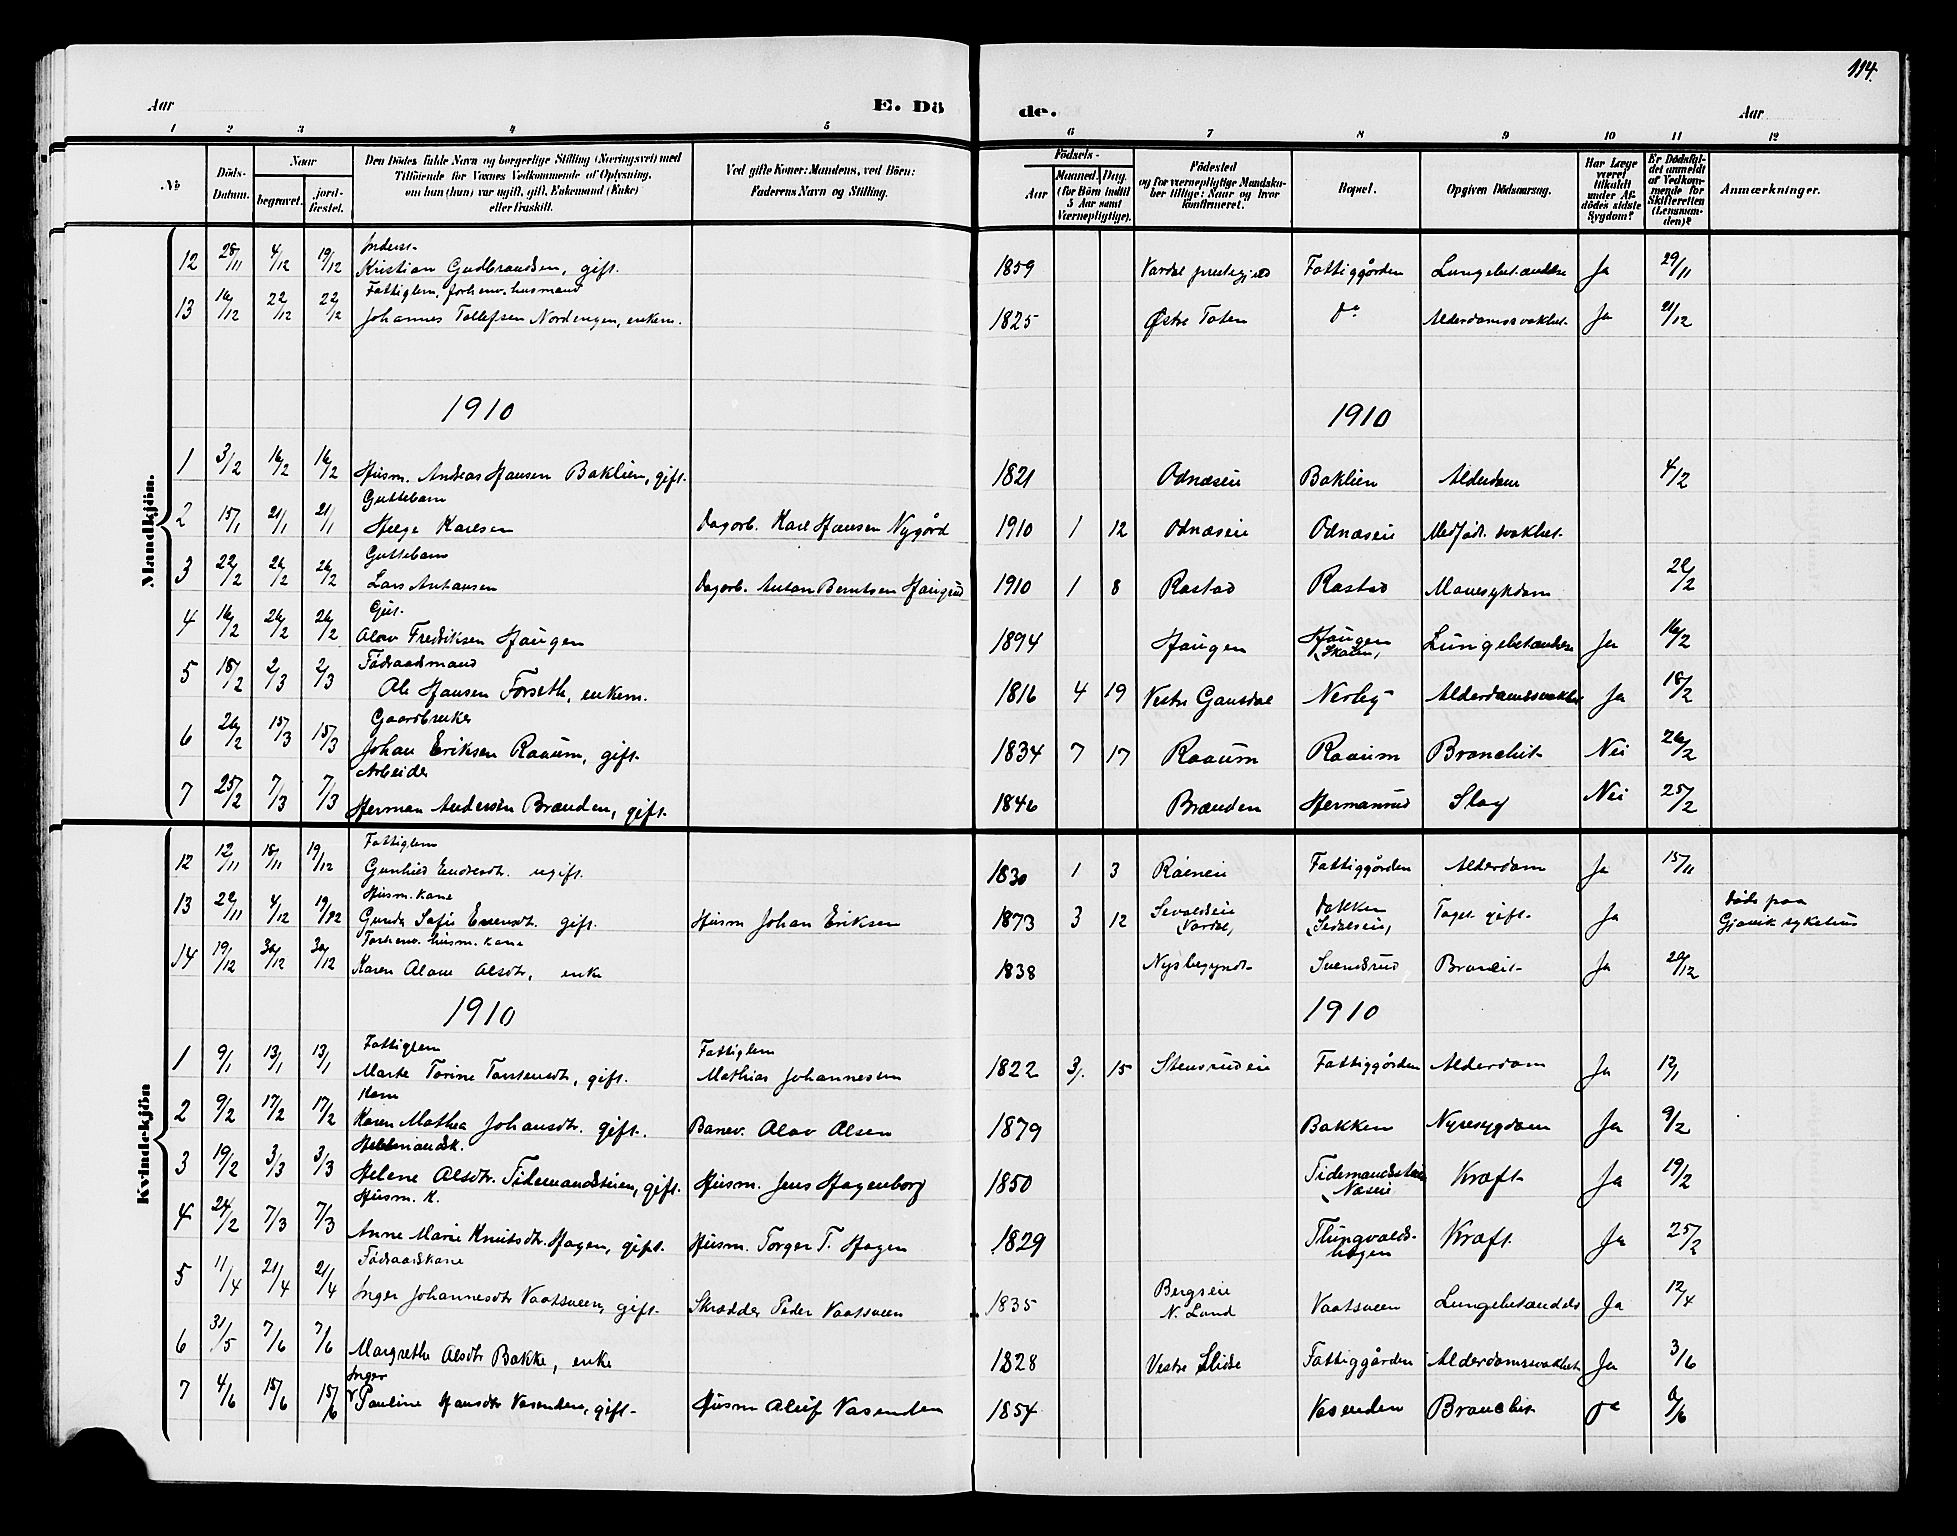 114.
Aar E. Dö de. Aar
1 2 3 4 5 6 7 8 9 10 11 12
No Döds-Datum. Naar begravet. jord-fæstet. Den Dödes fulde Navn og borgerlige Stilling (Næringsvei) med Tilföiende for Voxnes Vedkommende af Oplysning, om han (hun) var ugift, gift, Enkemand (Enke) eller fraskilt. Ved gifte Koner: Mandens, ved Börn: Faderens Navn og Stilling. Födsels- Aar Maaned. Dag. (for Börn indtil 5 Aar samt Værnepligtige). Födested og for værnepligtige Mandskaber tillige: Naar og hvor konfirmeret. Bopæl. Opgiven Dödsaarsag. Har Læge været tilkaldt under Afdödes sidste Sygdom? Er Dödsfaldet anmeldt af Vedkommende for Skifteretten (Lensmanden)? Anmærkninger.
Mandkjön.
Inderst.
12 28/11 4/12 19/12 Kristian Gudbrandsen, gift. 1859 Vardal prestegjeld Fattiggården Lungebetændelse Ja 29/11
Fattiglem, forhenv. husmand
13 16/12 22/12 22/12 Johannes Tollefsen Nordengen, enkem. 1825 Østre Toten do Alderdomssvakhet. Ja 21/12
1910 1910
1 3/2 16/2 16/2 Husm. Andreas Hansen Baklien, gift. 1821 Odnæseie Baklien Alderdom 4/2
Guttebarn
2 15/1 21/1 21/1 Helge Karlsen Dagarb. Karl Hansen Nygård 1910 1 12 Odnæseie Odnæseie Medfødt svakhet.
Guttebarn
3 22/2 26/2 26/2 Lars Antonsen Dagarb. Anton Berntsen Haugrud 1910 1 8 Rastad Rastad Mavesykdom 22/2
Gut.
4 16/2 26/2 26/2 Olav Fredriksen Haugen 1894 Haugen Haugen Lungebetændelse Ja 16/2
Föderaadsmand
5 18/2 2/3 2/3 Ole Hansen Forseth, enkem. 1816 4 19 Vestre Gausdal Nerby Alderdomssvakhet Ja 18/2
Gaardbruker
6 26/2 15/3 15/3 Johan Eriksen Raaum, gift. 1834 7 17 Raaum Raaum Bronchit Nei 26/2
Arbeider
7 25/2 7/3 7/3 Herman Andersen Brænden, gift. 1846 Brænden Hermanrud Slag Nei 25/2
Kvindekjön
Fattiglem
12 12/11 18/11 19/12 Gunhild Endresdt. ugift. 1830 1 3 Fattiggården Alderdom Ja 15/11
Husm. kone
13 22/11 4/12 19/12 Gunda Sofie Evensdt. gift. Husm Johan Eriksen 1873 3 12 Sevaldseie Vardal, Bakken Ja død paa Gjøvik sykehus
Forhenv. husm. kone
14 19/12 30/12 30/12 Karen Olava Olsdtr, enke 1838 Svendsrud Ja 20/12
1910 1910
Fattiglem Fattiglem
1 9/1 13/1 13/1 Marte Torine Torstensdtr, gift. Mathias Johannesen 1822 3. 15 Stensrudeie Fattiggården Alderdom Ja 12/1
Kone
2 9/2 17/2 17/2 Karen Mathea Johansdtr. gift. Banev. Olav Olsen 1879 Bakken Nyresygdom Ja 9/2
3 19/2 3/3 3/3 Helene Olsdtr. Tidemandseien, gift. Husm. Jens Hagenborg 1850 Tidemandseie Næseie Kræft Ja 19/2
Husm. K.
4 24/2 7/3 7/3 Anne Marie Knutsdtr. Hagen, gift. Husm. Torger T. Hagen 1829 Kræft. Ja 25/2
Föderaadskone
5 11/4 21/4 21/4 Inger Johannesdtr Vaatsveen, gift. Skrædder Peder Vaatsveen 1835 Bergseie N. Land Vaatsveen Lungebetændels Ja 12/4
6 31/5 7/6 7/6 Margrethe Olsdtr Bakke, enke 1828 Vestre Slidre Fattiggården Alderdomssvakhet Ja 3/6
Inger
7 4/6 15/6 15/6 Pauline Hansdtr Vasenden, gift. Husm Oluf Vasenden 1854 Vasenden Bronchit do 6/6